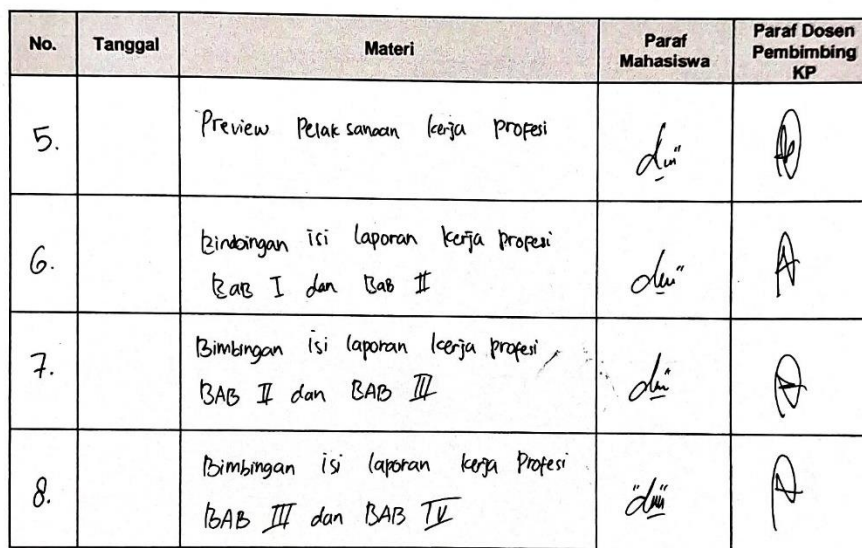 No. Tanggal Materi Paraf Mahasiswa Paraf Dosen Pembimbing KP
5. Preview Pelaksanaan kerja profesi
6. Bindbingan isi laporan kerja profesi
BAB I dan BAB II
7. Bimbingan isi laporan kerja profesi
BAB II dan BAB III
8. Bimbingan isi laporan kerja Profesi
BAB III dan BAB IV